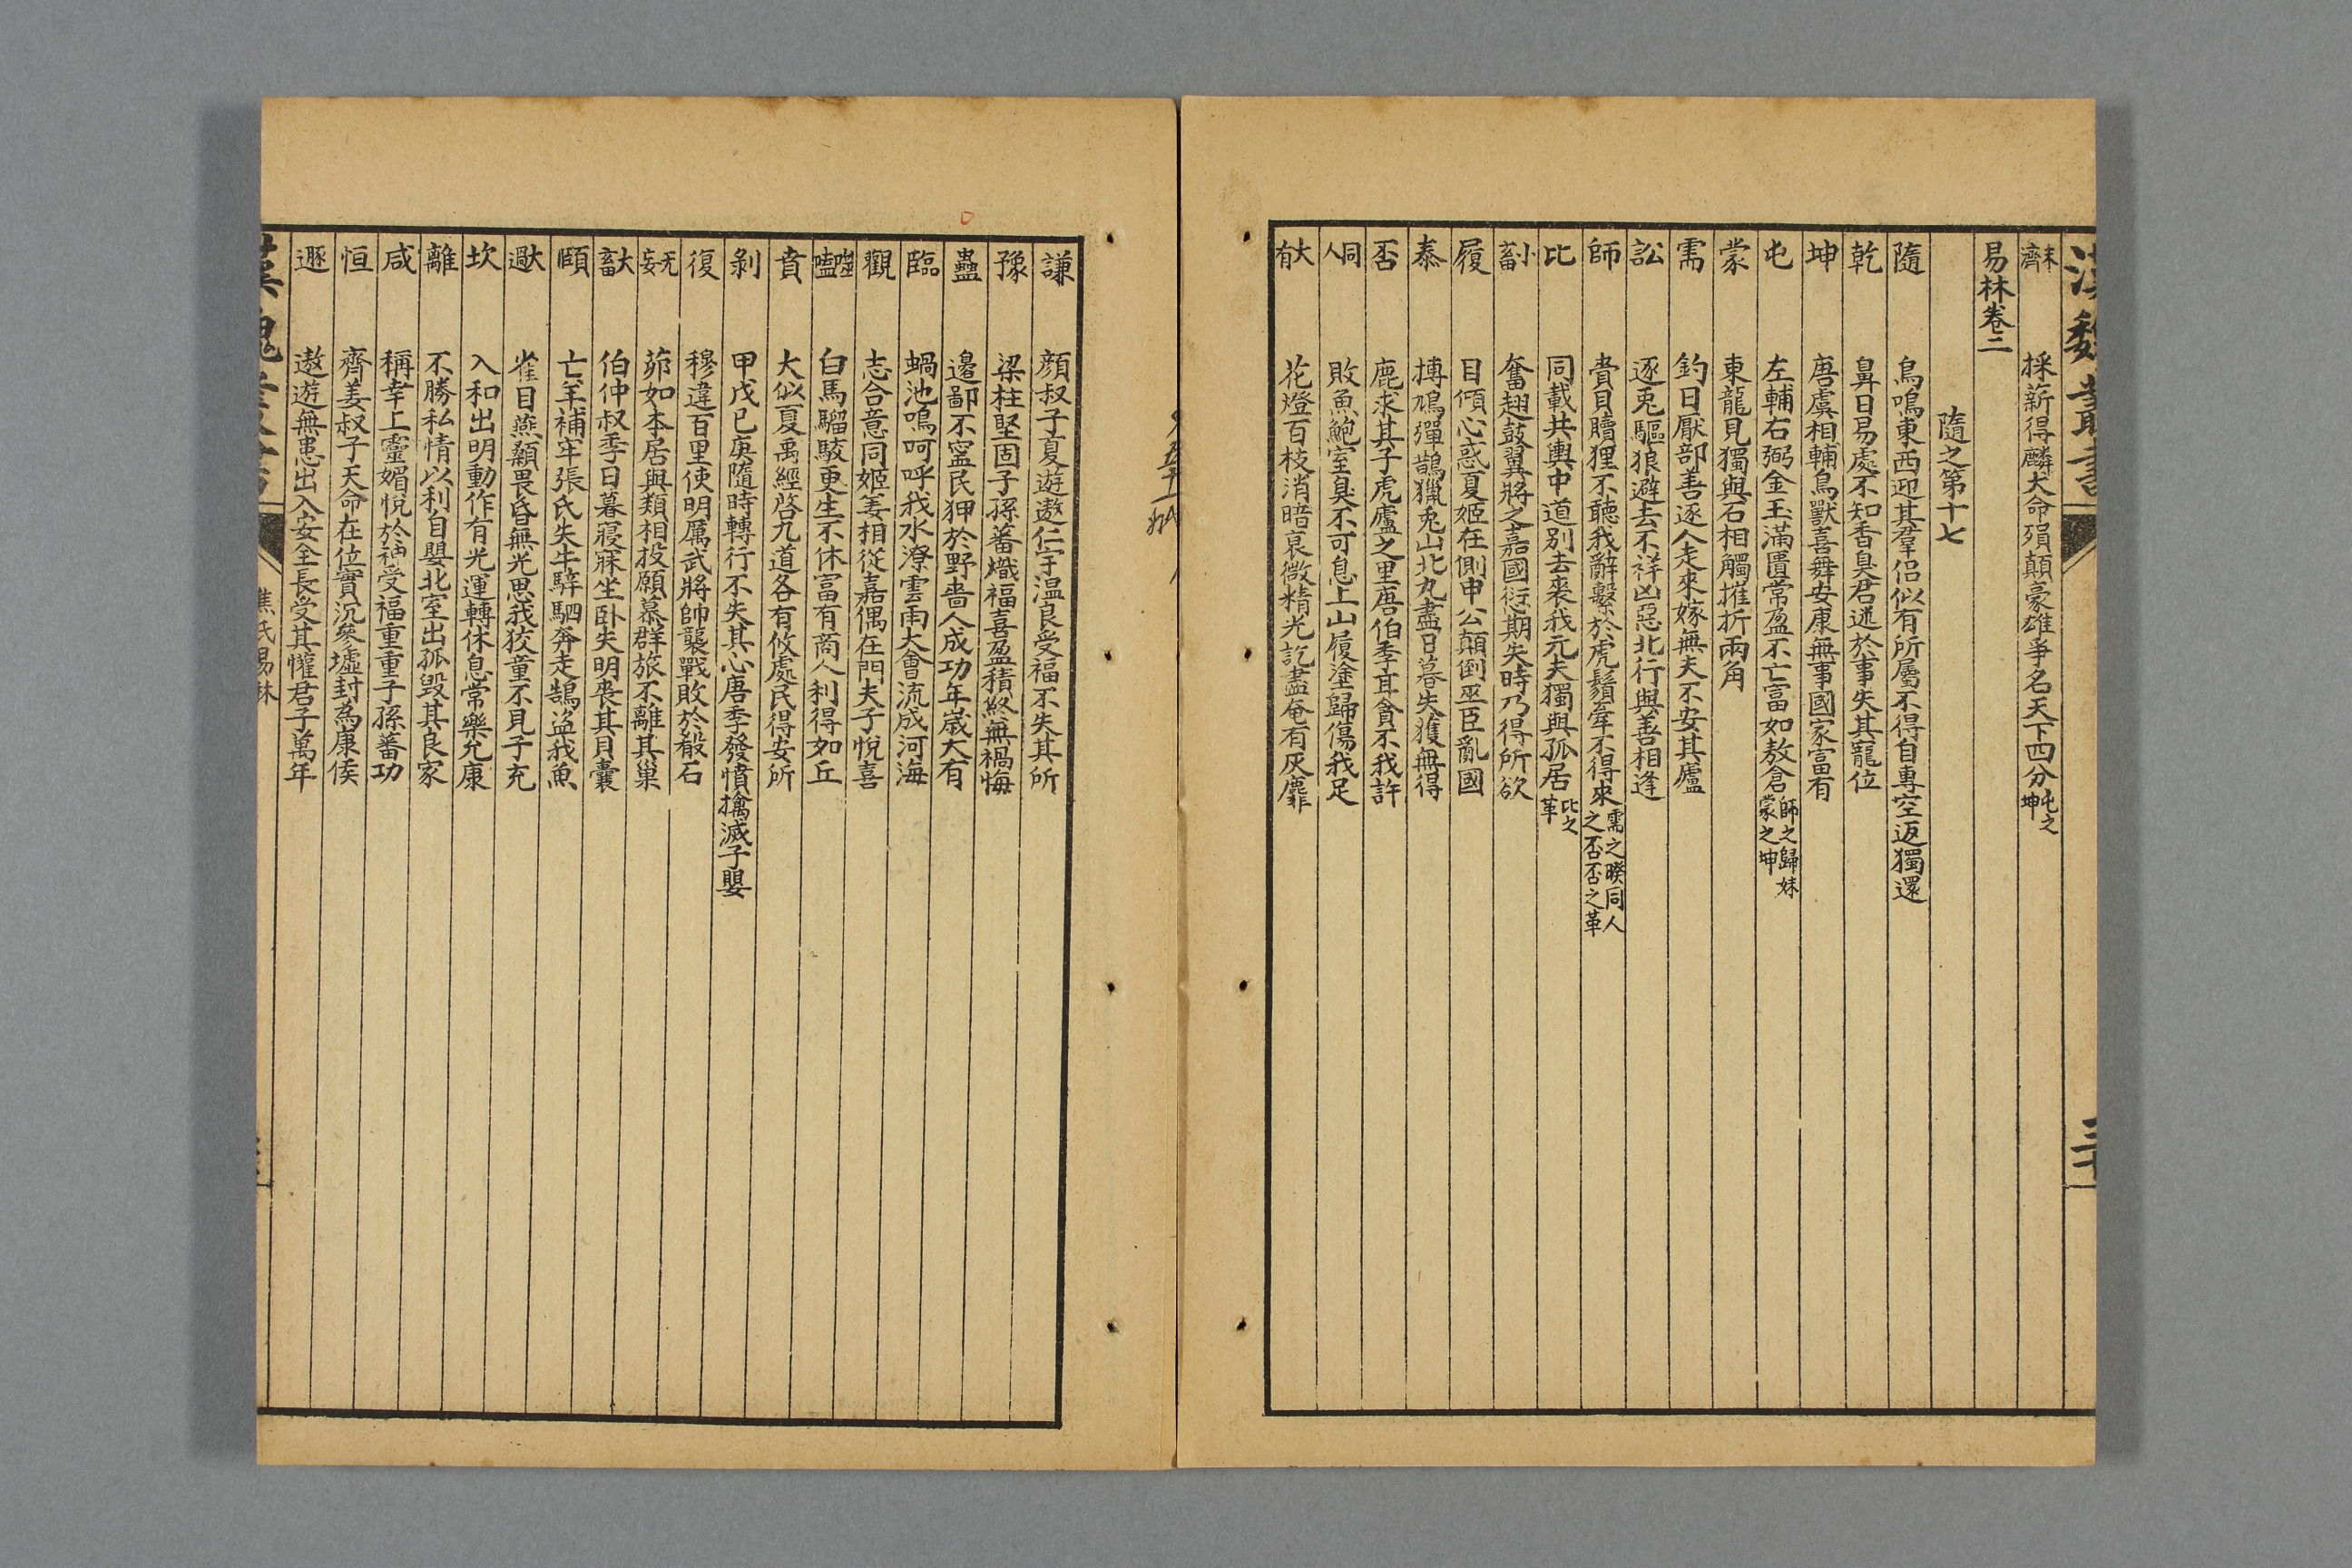 未濟 採薪得麟大命殞顛豪雄爭名天下四分屯之坤
易林卷二
隨之第十七
隨 鳥鳴東西迎其羣侶似有所屬不得自專空返獨還
乾 鼻目易處不知香臭君迷於事失其寵位
坤 唐虞相輔鳥獸喜舞安康無事國家富有
屯 左輔右弼金玉滿匱常盈不亡富如敖倉師之歸妹蒙之坤
蒙 東龍見獨與石相觸摧折兩角
需 釣目厭部善逐人走來嫁無夫不安其廬
訟 逐兎驅狼避去不祥凶惡北行與善相逢
師 賫貝贖狸不聽我辭繫於虎鬚牽不得來需之睽同人之否否之革
比 同載共輿中道別去喪我元夫獨與孤居比之革
小畜 奮翅鼓翼將之嘉國愆期失時乃得所欲
履 目傾心惑夏姬在側申公顛倒巫臣亂國
泰 搏鳩彈鵲獵兎山北丸盡日暮失獲無得
否 鹿求其子虎廬之里唐伯季耳貪不我許
同人 敗魚鮑室臭不可息上山履塗歸傷我足
大有 花燈百枝消暗衰微精光訖盡奄有灰靡
謙 顔叔子夏遊遨仁宇温良受福不失其所
豫 梁柱堅固子孫蕃熾福喜盈積終無禍悔
蠱 邊鄙不寧民狎於野嗇人成功年嵗大有
臨 蝸池鳴呵呼我水潦雲雨大會流成河海
觀 志合意同姬姜相從嘉偶在門夫子悅喜
噬嗑 白馬騮駮更生不休富有商人利得如丘
賁 大似夏禹經啓九道各有攸處民得安所
剝 甲戊巳庚隨時轉行不失其心唐季發憤擒滅子嬰
復 穆違百里使明厲武將帥襲戰敗於殽石
无妄 茆如本居與類相投願慕群旅不離其巢
大畜 伯仲叔季日暮寢寐坐卧失明喪其貝囊
頤 亡羊補牢張氏失牛騂駟奔走鵠盗我魚
大過 雀目燕顙畏昏無光思我狡童不見子充
坎 入和出明動作有光運轉休息常樂允康
離 不勝私情以利自嬰北室出孤毀其良家
咸 稱幸上靈媚悅於神受福重重子孫蕃功
恒 齊姜叔子天命在位實沉參墟封爲康侯
遯 遨遊無患出入安全長受其懽君子萬年
焦氏易林